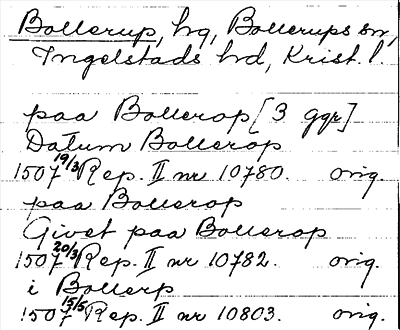 Bollerup, hg, Bollerups sn,
Ingelstads hd, Krist. l.
paa Bollerop [3 ggr]
Datum Bollerop
1507 19/3 Rep. II nr 10780. orig.
paa Bollerop
Givet paa Bollerop
1507 20/3 Rep. II nr 10782. orig.
i Bollerp
1507 15/5 Rep. II nr 10803. orig.